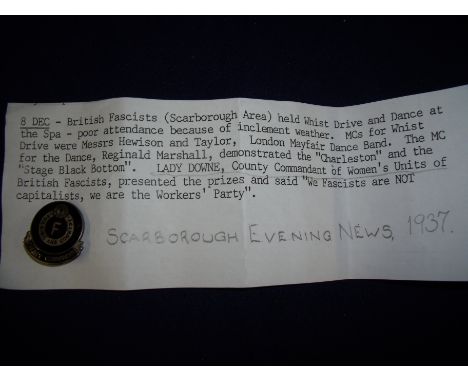 8 DEC - British Fascists (Scarborough Area) held Whist Drive and Dance at
the Spa - poor attendance because of inclement weather. MCs for Whist
Drive were Messrs Hewison and Taylor, London Mayfair Dance Band. The MC
for the Dance, Reginald Marshall, demonstrated the "Charleston" and the
"Stage Black Bottom". LADY DOWNE, County Commandant of Women's Units of
British Fascists, presented the prizes and said "We Fascists are NOT
capitalists, we are the Workers' Party".
F
SCARBOROUGH EVENING NEWS, 1937.